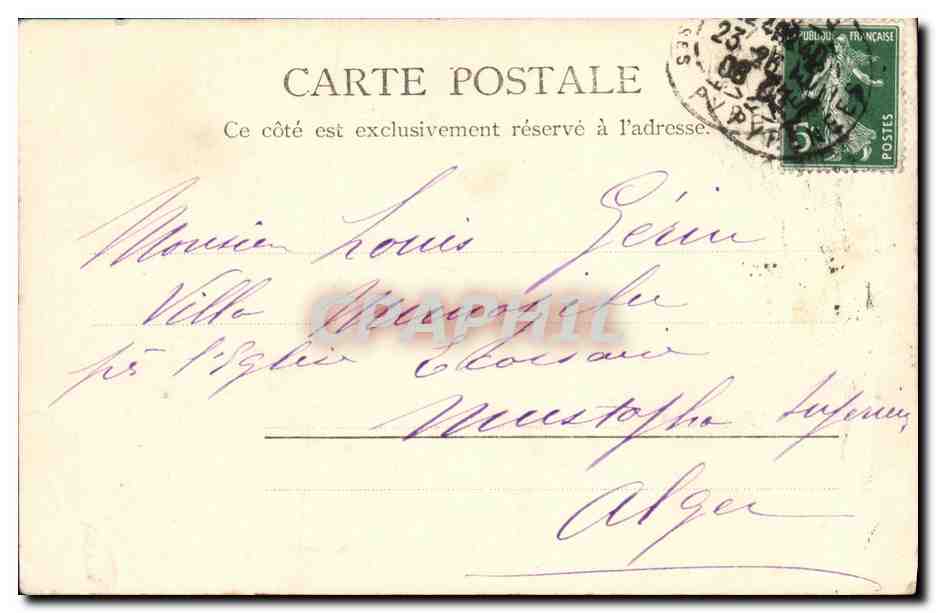 CARTE POSTALE
Ce côté est exclusivement réservé à l'adresse.
RÉPUBLIQUE FRANÇAISE
5c
POSTES
23
08
PYRENEES
Monsieur Louis Gérin
Villa
près l'Eglise Ecossaise
Mustapha Supérieur
Alger
CPAPHIL